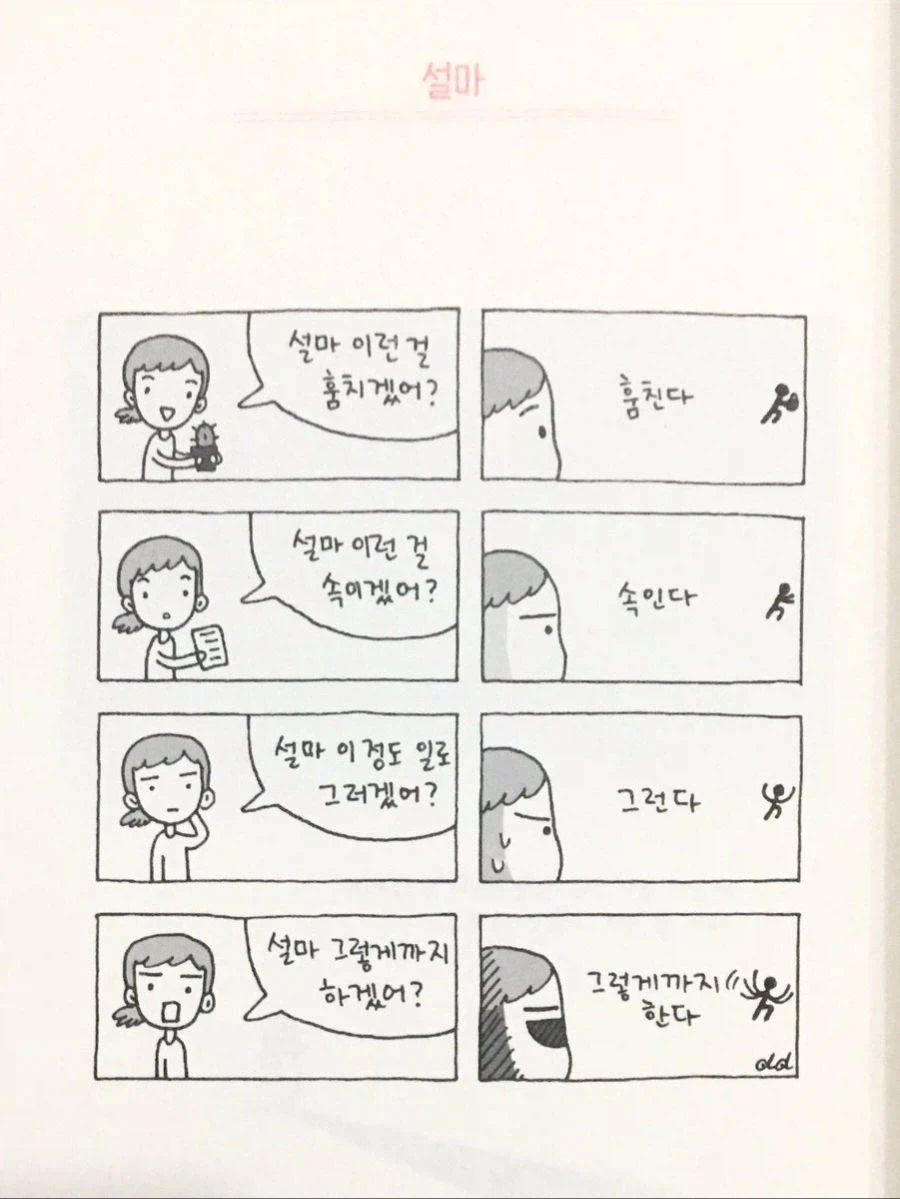 설마
설마 이런 걸
훔치겠어?
훔친다
설마 이런 걸
속이겠어?
속인다
설마 이 정도 일로
그러겠어?
그런다
설마 그렇게까지
하겠어?
그렇게까지
한다
dd